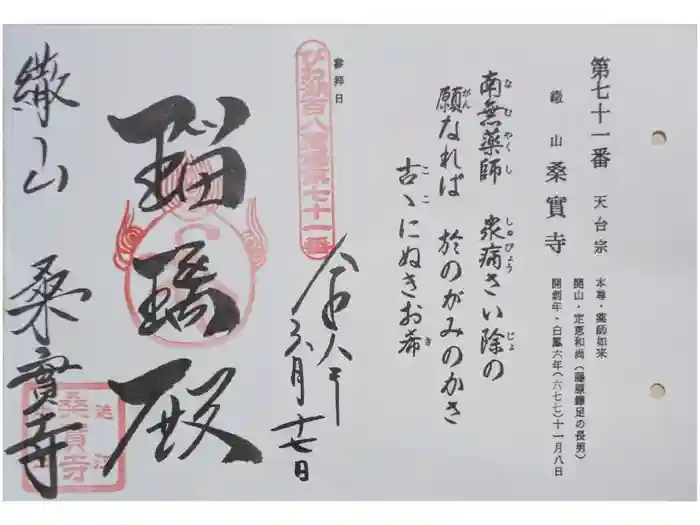 第七十一番 天台宗
繖山 桑實寺
本尊・薬師如来
開山・定恵和尚(藤原鎌足の長男)
開創年・白鳳六年(六七七)十一月八日
南無薬師 衆病さい除の
なむやくし しゅびょう じょ
願なれば 於のがみのかさ
がん
古ヽにぬきお希
ここ き
参拝日
びわ湖百八霊場第七十一番
六月十七日
瑠璃殿
繖山 桑實寺
近江
桑實寺